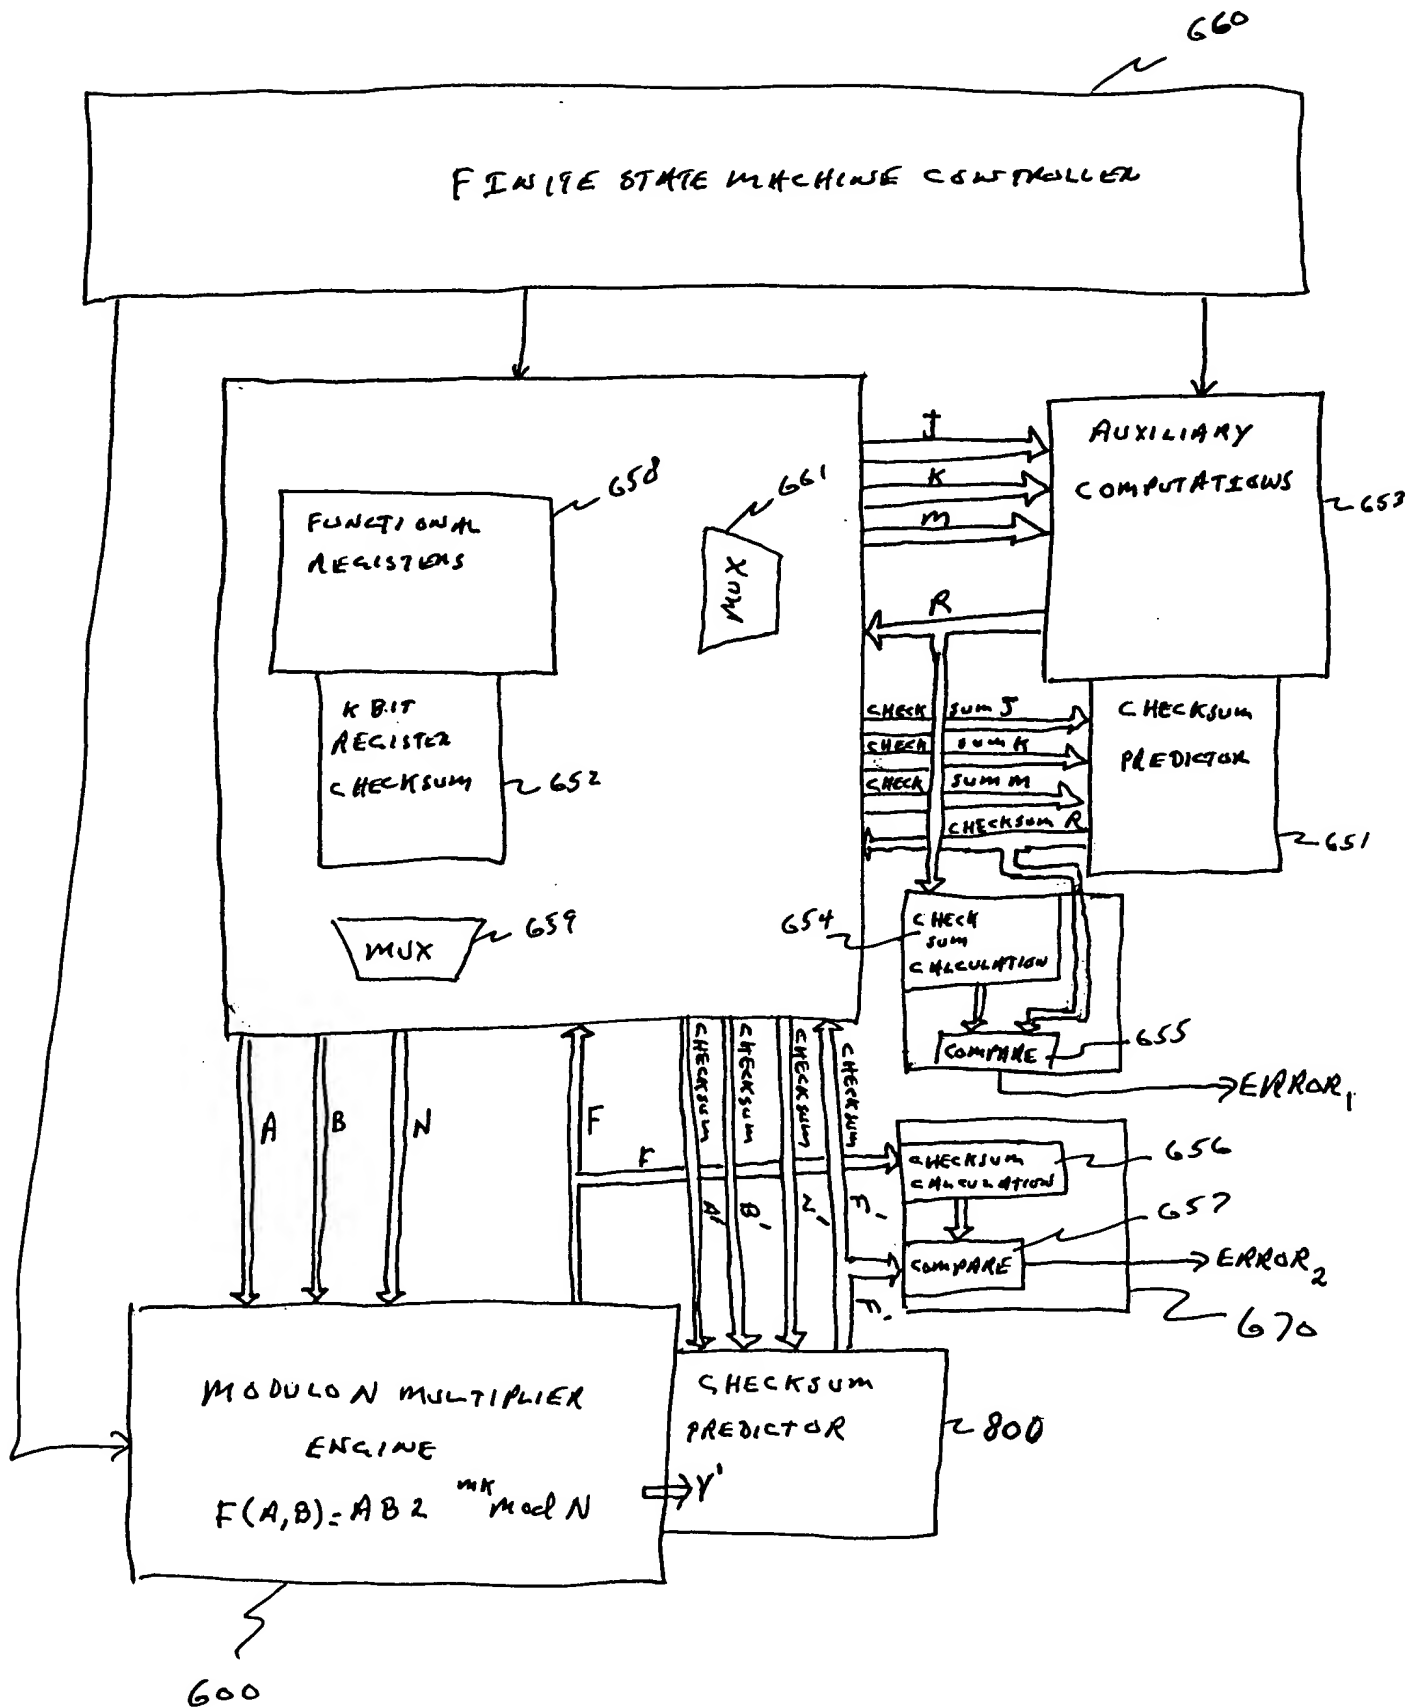 660
FINITE STATE MACHINE CONTROLLER
FUNCTIONAL
REGISTERS
658
661
MUX
J
K
M
AUXILIARY
COMPUTATIONS
653
R
K BIT
REGISTER
CHECKSUM
652
CHECK SUM J
CHECK SUM K
CHECK SUM M
CHECKSUM R
CHECKSUM
PREDICTOR
651
MUX
659
654
CHECK
SUM
CALCULATION
COMPARE
655
ERROR1
A
B
N
F
F
CHECKSUM A'
CHECKSUM B'
CHECKSUM N'
CHECKSUM F'
F'
CHECKSUM
CALCULATION
656
COMPARE
657
ERROR2
670
MODULO N MULTIPLIER
ENGINE
F(A,B)=AB2 mk mod N
Y'
CHECKSUM
PREDICTOR
800
600